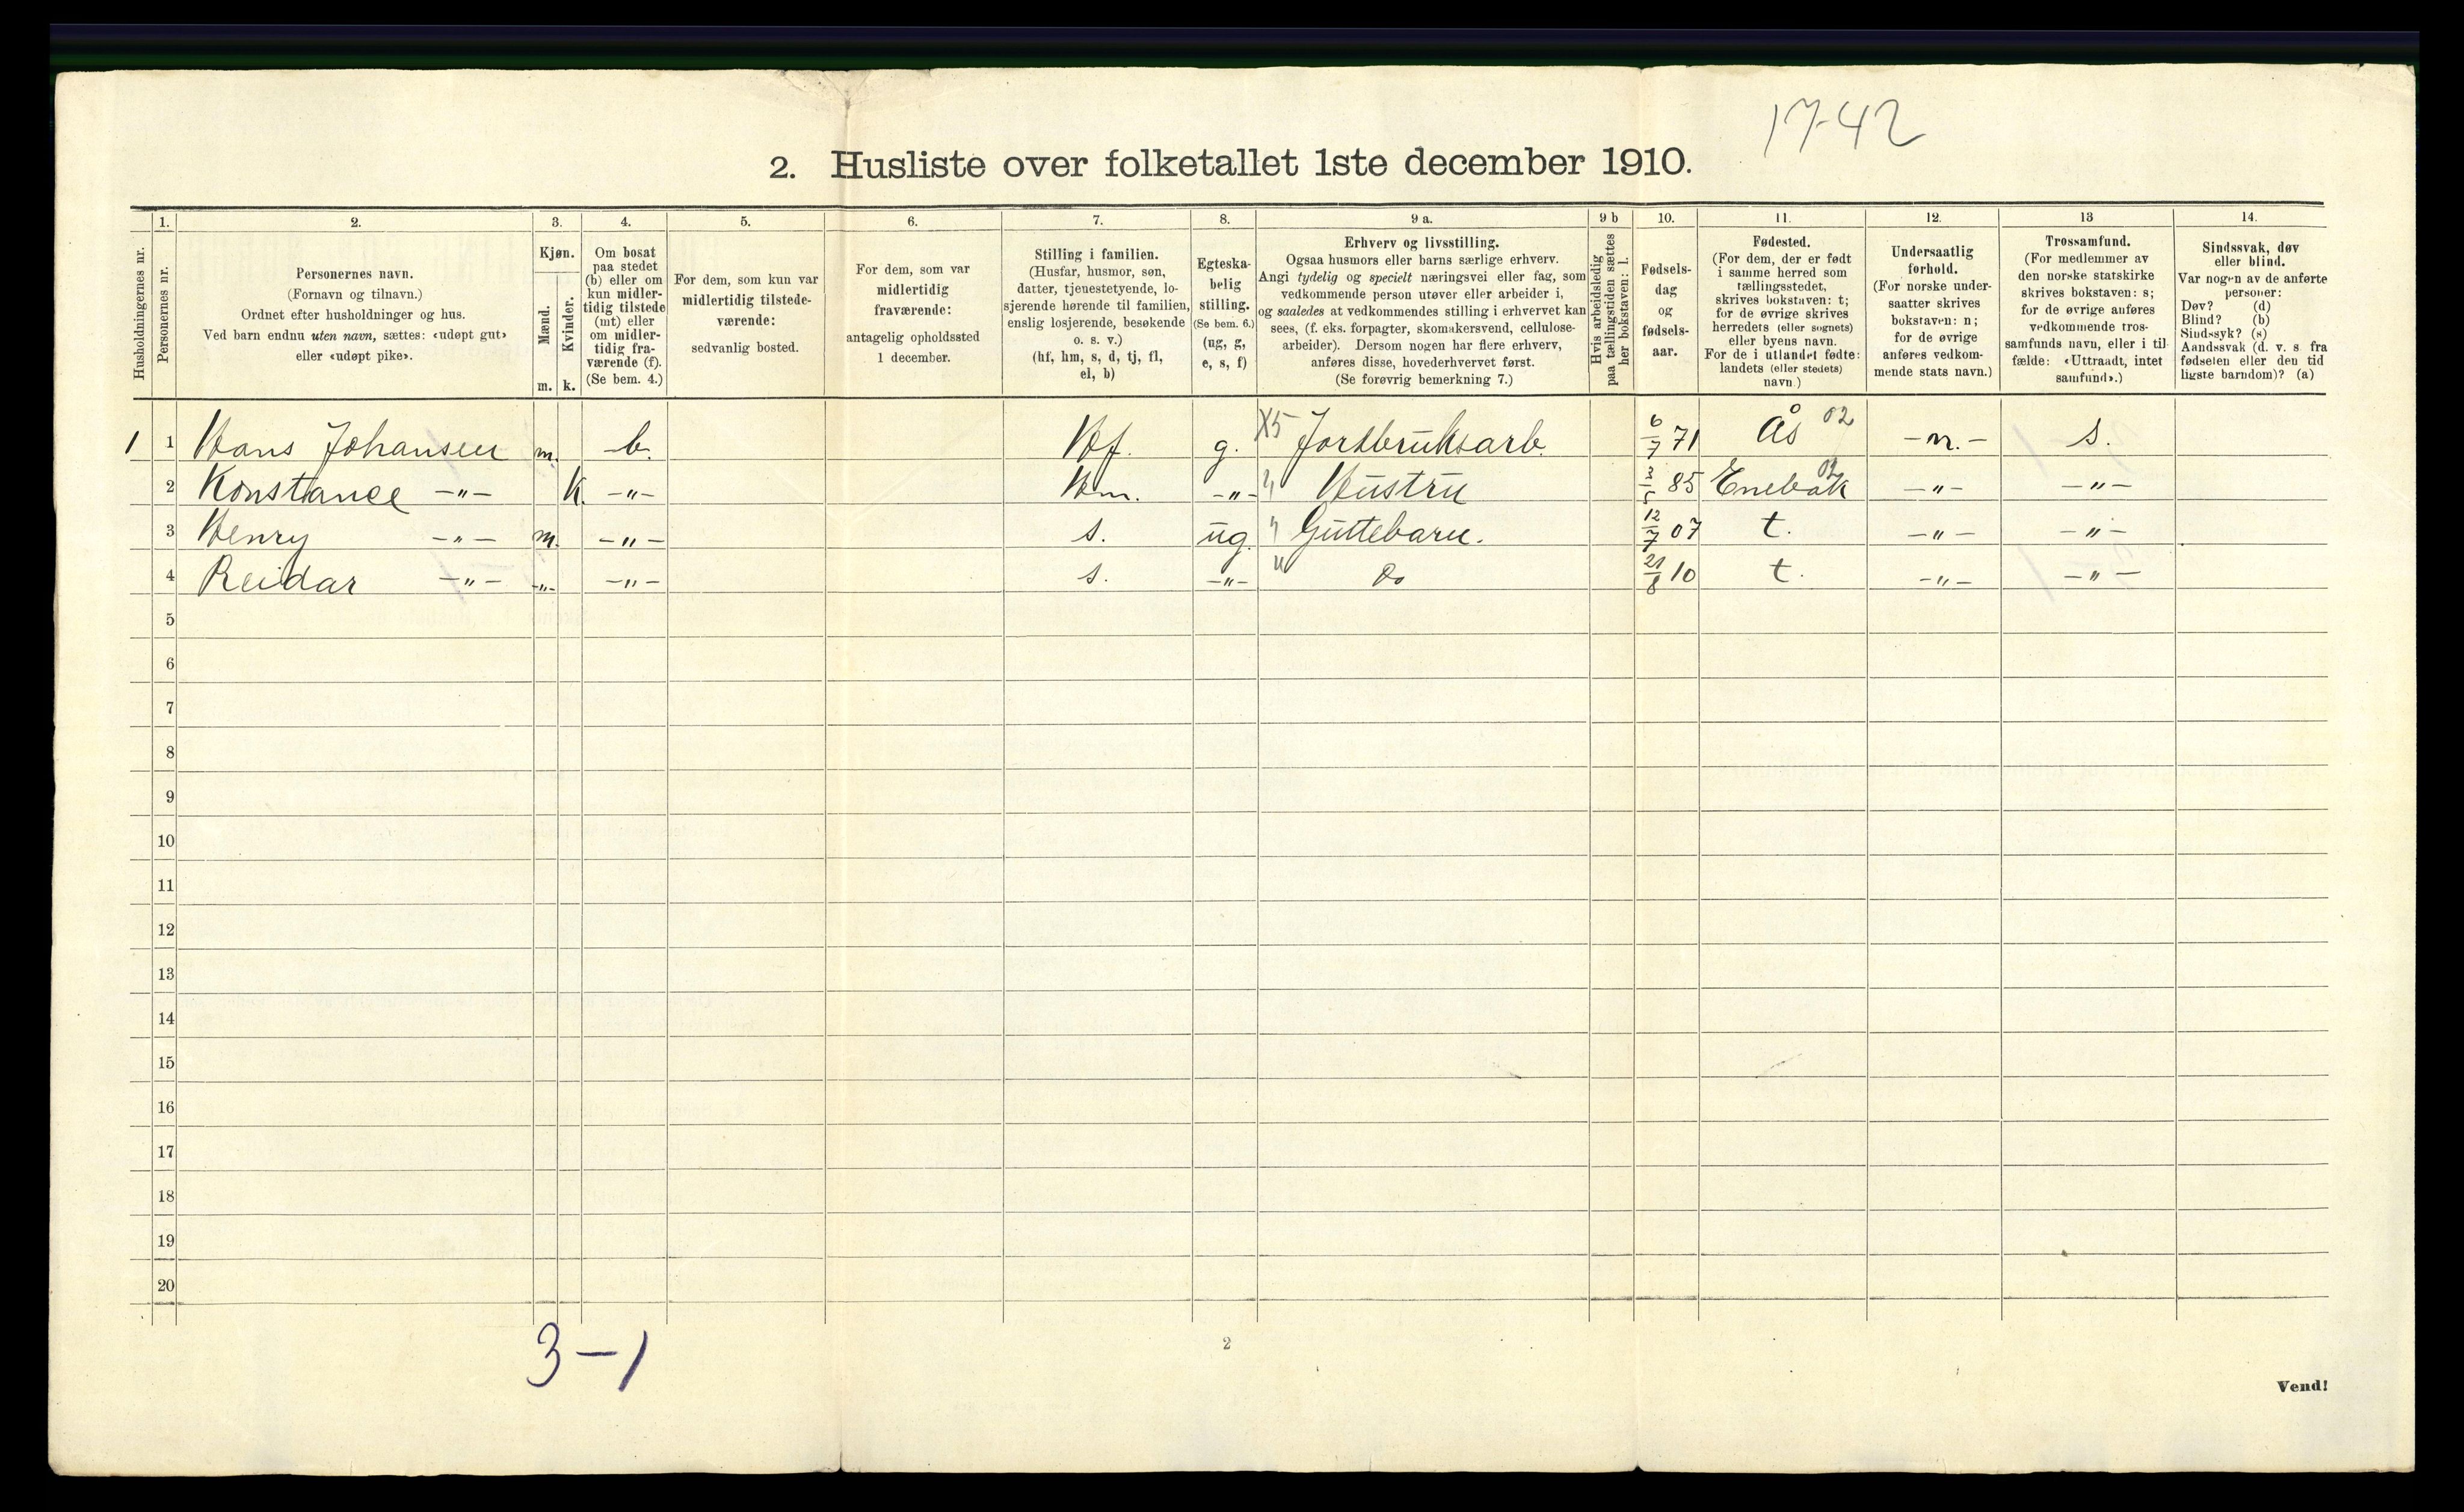 17-42
2. Husliste over folketallet 1ste december 1910.
Husholdningernes nr.
1.
Personernes nr.
2.
Personernes navn.
(Fornavn og tilnavn.)
Ordnet efter husholdninger og hus.
Ved barn endnu uten navn, sættes: «udøpt gut»
eller «udøpt pike».
3.
Kjøn.
Mænd.
m.
Kvinder.
k.
4.
Om bosat
paa stedet
(b) eller om
kun midler-
tidig tilstede
(mt) eller
om midler-
tidig fra-
værende (f).
(Se bem. 4.)
5.
For dem, som kun var
midlertidig tilstede-
værende:
sedvanlig bosted.
6.
For dem, som var
midlertidig
fraværende:
antagelig opholdssted
1 december.
7.
Stilling i familien.
(Husfar, husmor, søn,
datter, tjenestetyende, lo-
sjerende hørende til familien,
enslig losjerende, besøkende
o. s. v.)
(hf, hm, s, d, tj, fl,
el, b)
8.
Egteska-
belig
stilling.
(Se bem. 6.)
(ug, g,
e, s, f)
9 a.
Erhverv og livsstilling.
Ogsaa husmors eller barns særlige erhverv.
Angi tydelig og specielt næringsvei eller fag, som
vedkommende person utøver eller arbeider i,
og saaledes at vedkommendes stilling i erhvervet kan
sees, (f. eks. forpagter, skomakersvend, cellulose-
arbeider). Dersom nogen har flere erhverv,
anføres disse, hovederhvervet først.
(Se forøvrig bemerkning 7.)
9 b
Hvis arbeidsledig
paa tællingstiden sættes
her bokstaven: l.
10.
Fødsels-
dag
og
fødsels-
aar.
11.
Fødested.
(For dem, der er født
i samme herred som
tællingsstedet,
skrives bokstaven: t;
for de øvrige skrives
herredets (eller sognets)
eller byens navn.
For de i utlandet fødte:
landets (eller stedets)
navn.)
12.
Undersaatlig
forhold.
(For norske under-
saatter skrives
bokstaven: n;
for de øvrige
anføres vedkom-
mende stats navn.)
13
Trossamfund.
(For medlemmer av
den norske statskirke
skrives bokstaven: s;
for de øvrige anføres
vedkommende tros-
samfunds navn, eller i til-
fælde: «Uttraadt, intet
samfund».)
14.
Sindssvak, døv
eller blind.
Var nogen av de anførte
personer:
Døv? (d)
Blind? (b)
Sindssyk? (s)
Aandssvak (d. v. s. fra
fødselen eller den tid-
ligste barndom)? (a)
1 1 Hans Johansen m. b. Hf. g. X5 Jordbruksarb. 6/7 71 Ås 02 -n.- s.
2 Konstance -"- K. -"- Hm. -"- " Hustru 3/5 85 Enebak 02 -"- -"-
3 Henry -"- m. -"- s. ug. " Guttebarn. 12/7 07 t. -"- -"-
4 Reidar -"- -"- -"- s. -"- " Do 21/8 10 t. -"- -"-
5
6
7
8
9
10
11
12
13
14
15
16
17
18
19
20
3-1
2
Vend!